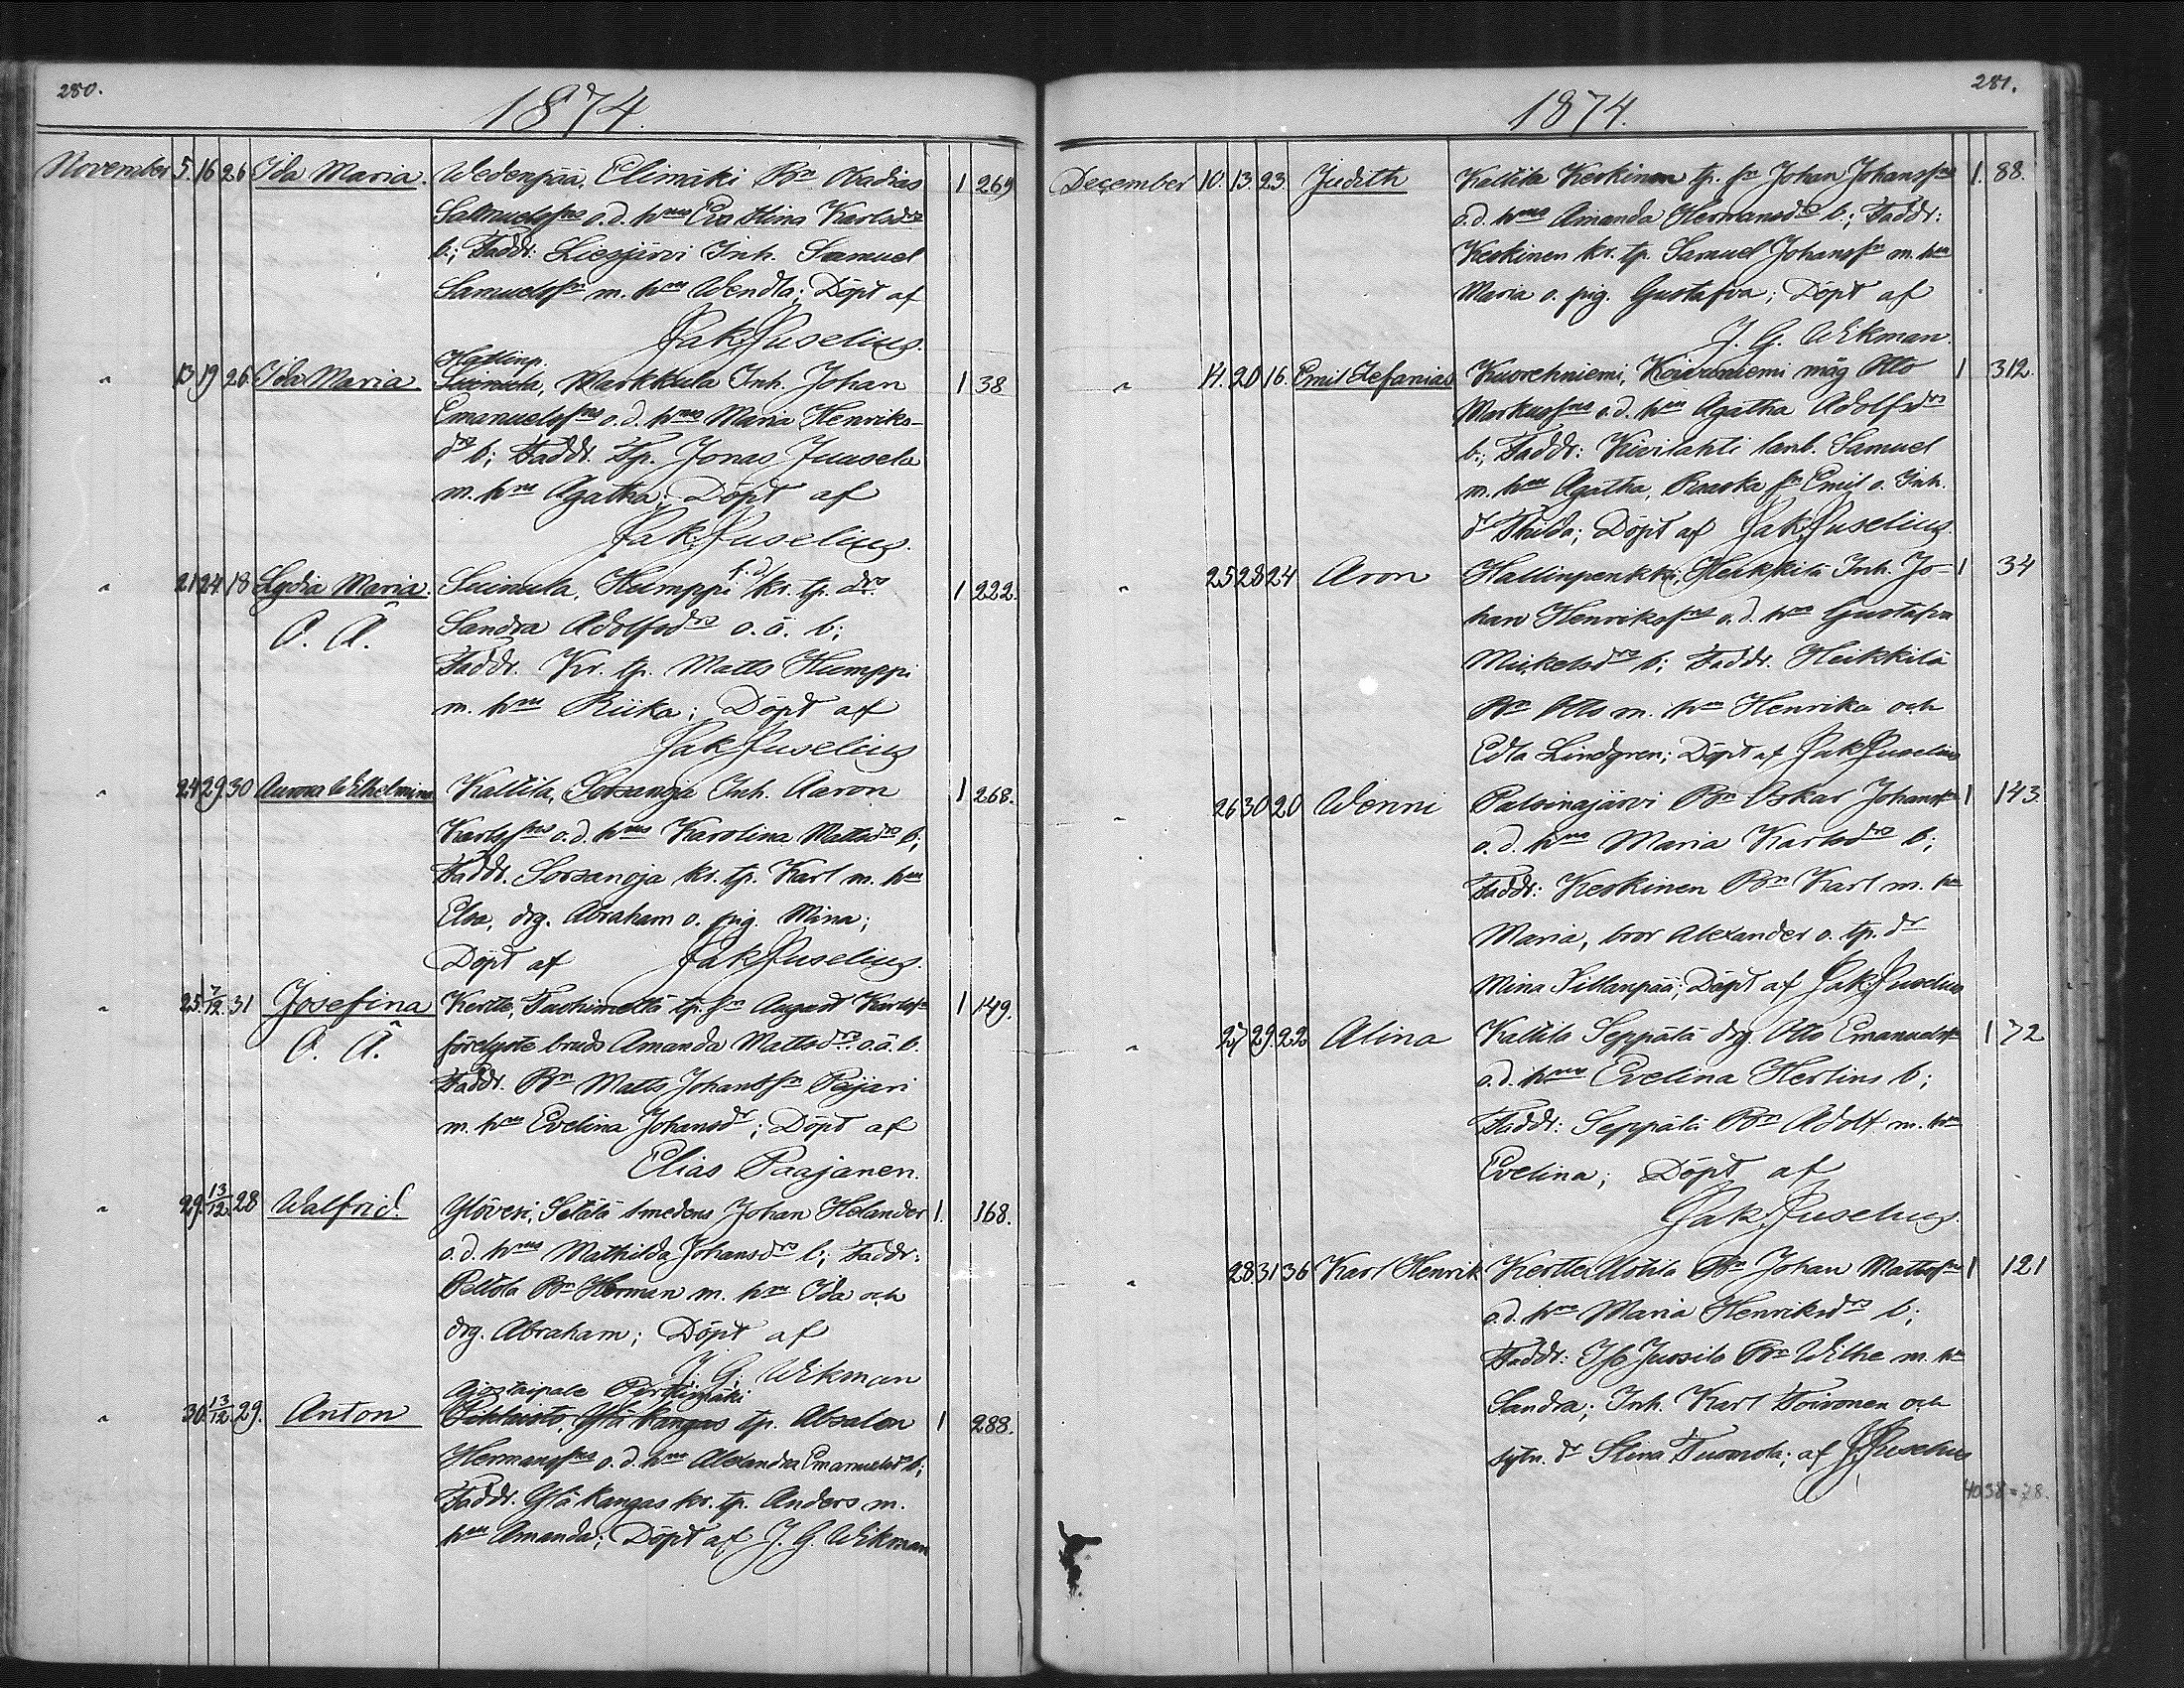 280.
1874.
November 5. 16 26 Ida Maria. Wedenpää, Elimäki Bn Obadias 1 269
Samuelssns o. d. hnes Eva Stina Karlsdrs
b.; Faddr: Liesjärvi Inh. Samuel
Samuelssn m. hnn Wendla; Döpt af
Jak. Juselius.
Hallinp.
" 13 19 26. Ida Maria Suinula, Markkula Inh. Johan 1 38
Emanuelssns o. d. hnes Maria Henriks-
drs b; Faddr. Tp. Jonas Juusela
m. hnn Agatha; Döpt af
Jak. Juselius.
" 21 24 18 Lydia Maria. Suinula, Humppi f. d. kr. tp. drs 1 222.
O. Ä. Sandra Adolfsdrs o. ä. b;
Faddr. Kr. tp. Matts Humppi
m. hnn Riika; Döpt af
Jak Juselius
" 24 29 30 Aurora Wilhelmina Kattila, Sorsanoja Inh. Aaron 1 268.
Karlssns o. d. hnes Karolina Mattsdrs b;
Faddr. Sorsanoja kr. tp. Karl m. hnn
Elsa, drg. Abraham o. pig. Mina;
Döpt af Jak Juselius.
" 25. 7/12. 31 Josefina Kertte, tp. sn August Karlssn 1 149.
O. Ä. förelgste bruds Amanda Mattsdrs o. ä. b.
Faddr. Bn Matts Johanssn Pajari
m. hnn Evelina Johansdr; Döpt af
Elias Paajanen.
" 29. 13/12. 28 Walfrid. Ylövesi, Setälä smedens Johan Helander 1. 168.
o. d. hnes Mathilda Johansdrs b; Faddr:
Peltola Bn Herman m. hnn Ida och
drg. Abraham; Döpt af
J. G. Wikman
Ajostaipale Perttimäki
" 30. 13/12. 29. Anton Ylä Kangas tp. Absalon 1 288.
Hermanssns o. d. hnes Alexandra Emanuelsdrs b;
Faddr. Ylä Kangas kr. tp. Anders m.
hnn Amanda; Döpt af J. G. Wikman
281.
1874.
December 10. 13. 23. Judith Kattila Keskinen tp. sn Johan Johanssns 1. 88.
o. d. hnes Amanda Hermansdrs b.; Faddr:
Keskinen kr. tp. Samuel Johanssn m. hnn
Maria o. pig. Gustafva; Döpt af
J. G. Wikman.
" 14. 20 16. Emil Zefanias Kuorehniemi, Koivuniemi måg Otto 1 312.
Markussns o. d. hnes Agatha Adolfsdrs
b.; Faddr: Kivilahti lanb. Samuel
m. hnn Agatha, Raaska sn Emil o. Inh.
dr Thilda; Döpt af Jak. Juselius.
" 25 28 24 Aron Hallinpenkki, Heikkilä Inh. Jo- 1 34
han Henrikssns o. d. hnes Gustafva
Mickelsdrs b; Faddr. Heikkilä
Bn Otto m. hnn Henrika och
Edla Lindgren; Döpt af Jak Juselius
" 26 30 20 Wenni Palvinajärvi Bn Oskar Johanssns 1 143.
o. d. hnes Maria Karlsdrs b;
Faddr: Keskinen Bn Karl m. hnn
Maria, bror Alexander o. tp. dr
Mina Sillanpää; Döpt af Jak. Juselius
" 27 29 22 Alina Kattila Seppälä drg. Otto Emanuelssns 1 72
o. d. hnes Evelina Herlins b;
Faddr: Seppälä Bn Adolf m. hnn
Evelina; Döpt af
Jak. Juselius.
" 28 31 36 Karl Henrik Kertte Uotila Bn Johan Mattssns 1 121
o. d. hnes Maria Henriksdrs b;
Faddr: Iso Jussila Bn Wilhe m. hnn
Sandra; Inh. Karl Toivonen och
sytn. dr Stina Tuomola; af J. Juselius